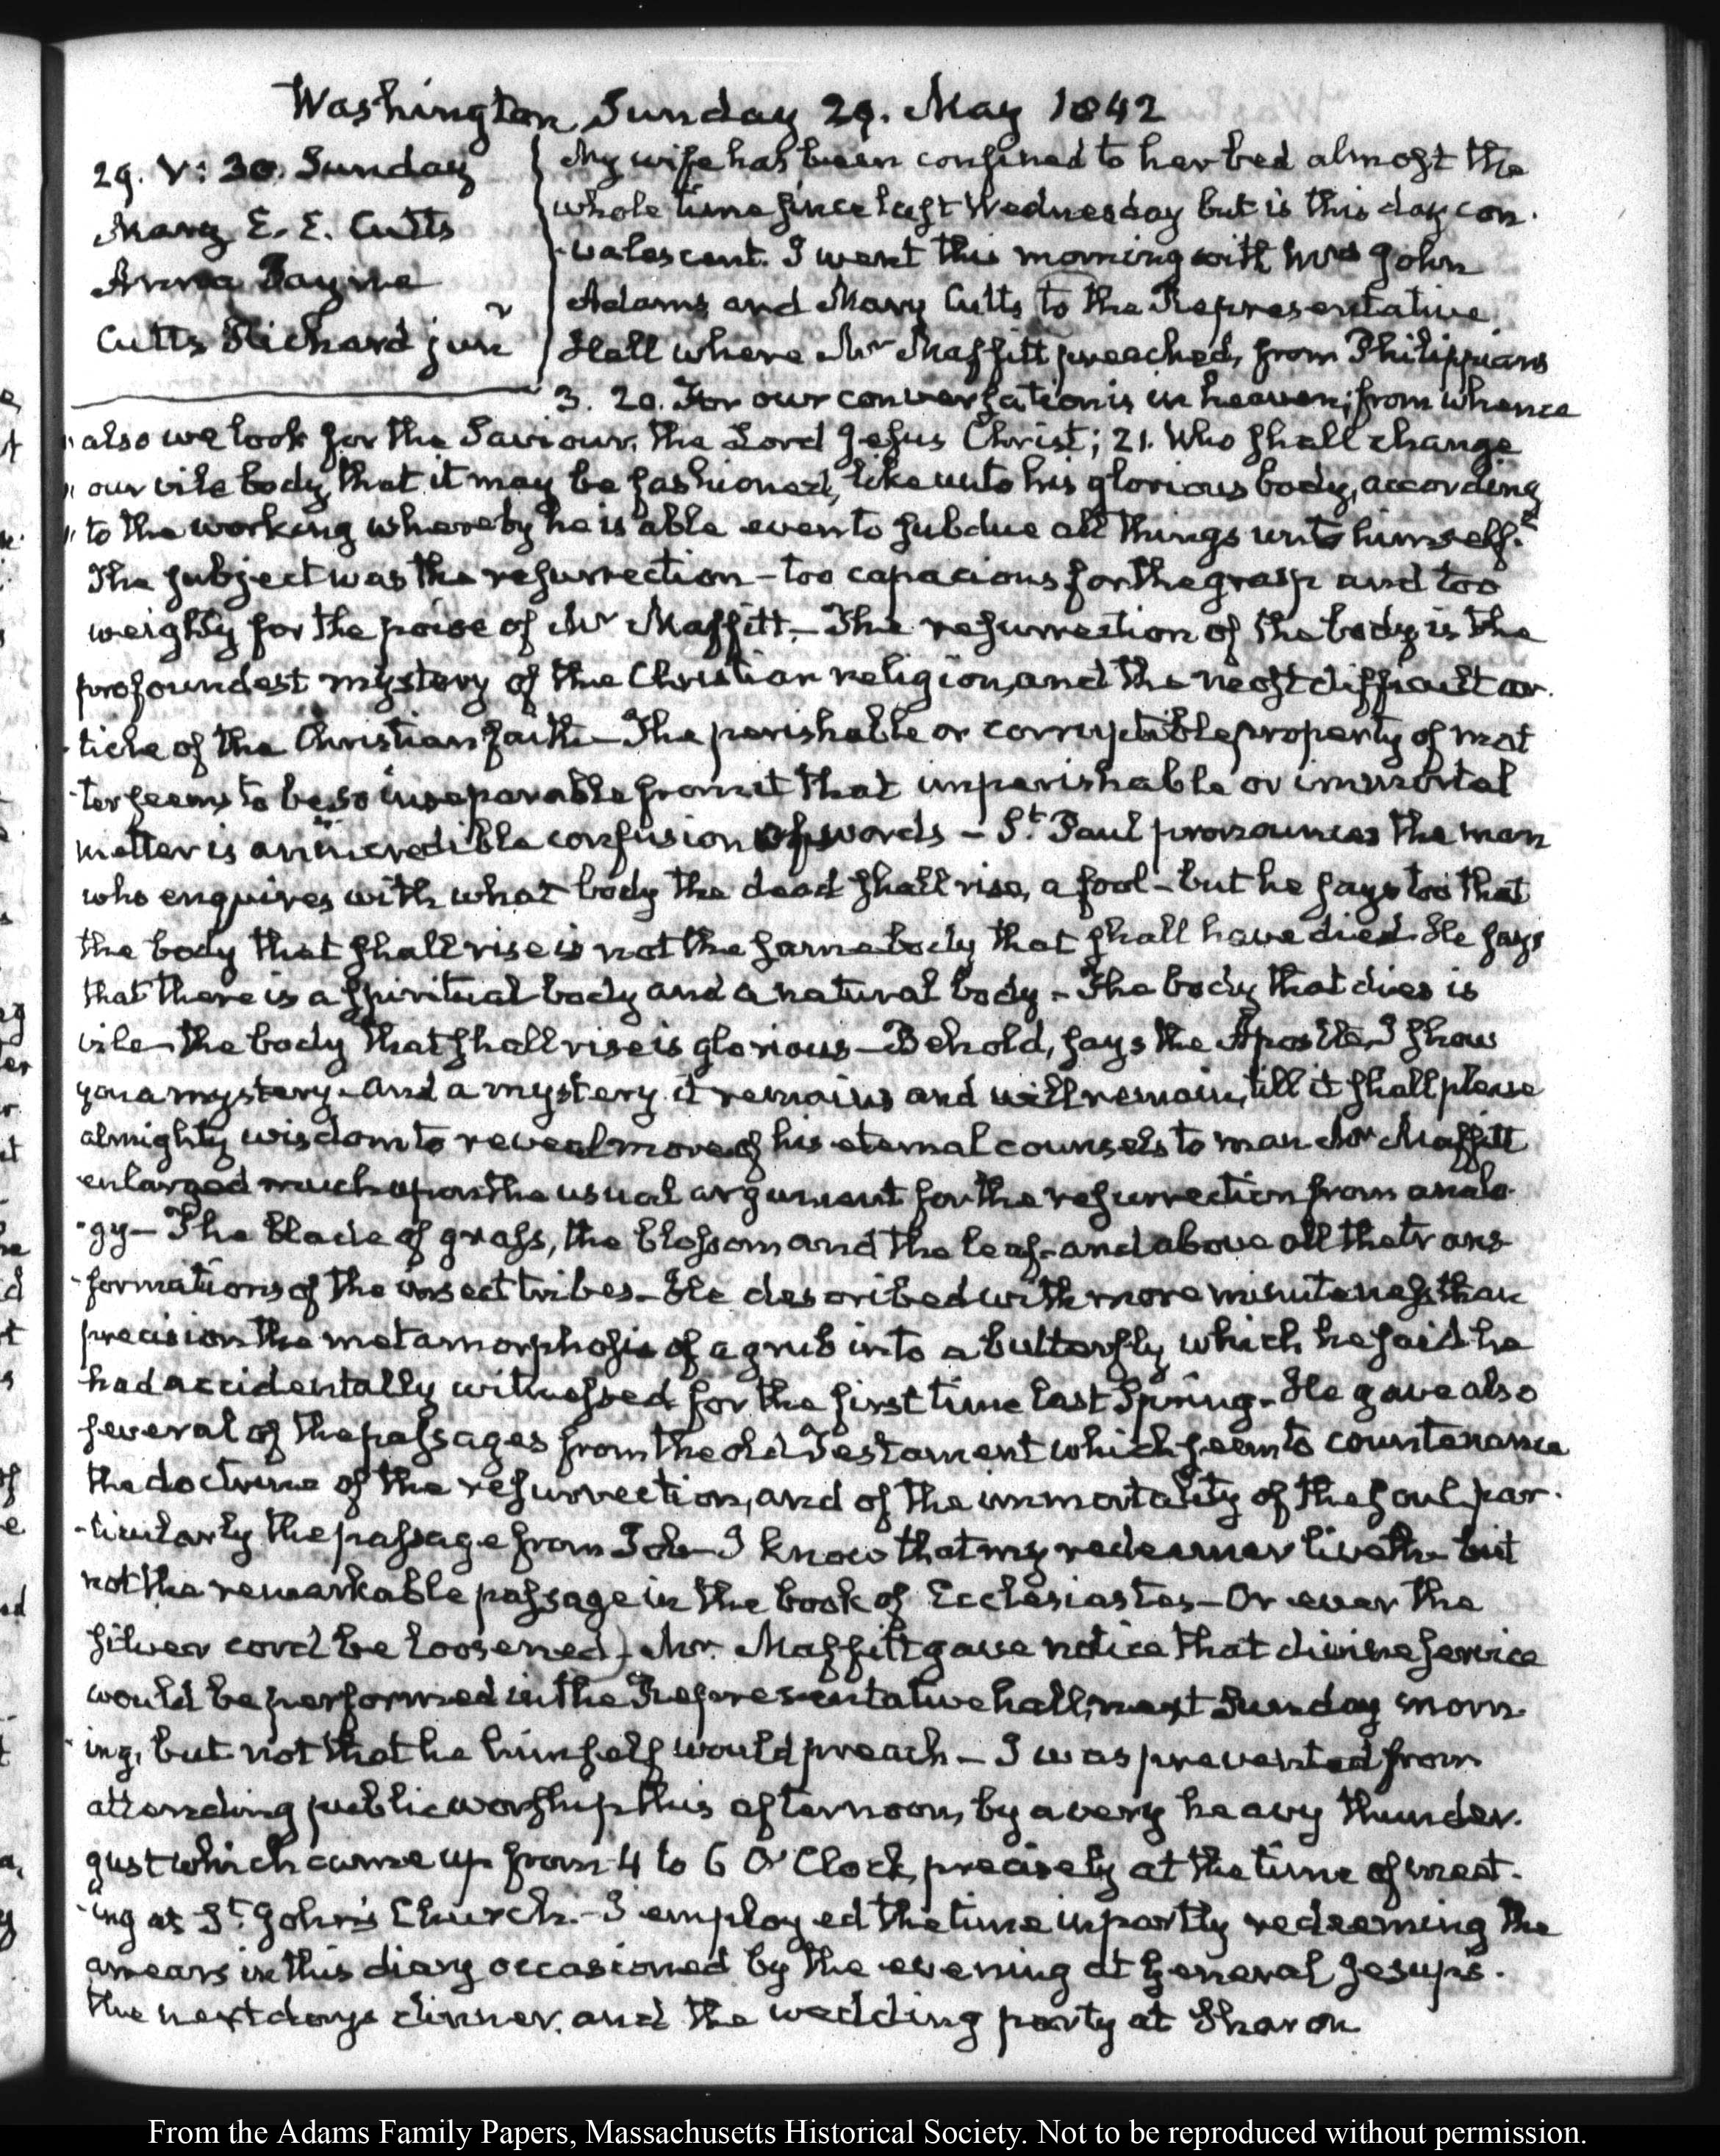 Washington Sunday 29. May 1842
29. V: 30. Sunday
Mary E. E. Cutts
Anna Payne
Cutts Richard junr
My wife has been confined to her bed almost the
whole time since last Wednesday but is this day con-
-valescent. I went this morning with Mrs John
Adams and Mary Cutts to the Representative
Hall where Mr Maffitt preached, from Philippians
3. 20. For our conversation is in heaven; from whence
" also we look for the Saviour, the Lord Jesus Christ; 21. Who shall change
" our vile body, that it may be fashioned, like unto his glorious body, according
" to the working whereby he is able even to subdue all things unto himself."
The subject was the resurrection - too capacious for the grasp and too
weighty for the poise of Mr Maffitt. - The resurrection of the body is the
profoundest mystery of the Christian religion, and the most difficult ar-
-ticle of the Christian faith - The perishable or corruptible property of mat
-ter seems to be so inseparable from it that imperishable or immortal
matter is an incredible confusion of words - St. Paul pronounces the man
who enquires with what body the dead shall rise, a fool - but he says too that
the body that shall rise is not the same body that shall have died. He says
that there is a spiritual body and a natural body - The body that dies is
vile - the body that shall rise is glorious - Behold, says the Apostle, I show
you a mystery - and a mystery it remains and will remain, till it shall please
almighty wisdom to reveal more of his eternal counsels to man Mr Maffitt
enlarged much upon the usual argument for the resurrection from analo-
-gy - The blade of grass, the blossom and the leaf - and above all the trans-
-formations of the insect tribes - He described with more minuteness than
precision the metamorphosis of a grub into a butterfly which he said he
had accidentally witnessed for the first time last Spring - He gave also
several of the passages from the old Testament which seem to countenance
the doctrine of the resurrection, and of the immortality of the soul, par-
-ticularly the passage from Job - I know that my redeemer liveth - but
not the remarkable passage in the book of Ecclesiastes - Or ever the
silver cord be loosened) - Mr. Maffitt gave notice that divine service
would be performed in the Representative hall, next Sunday morn-
-ing, but not that he himself would preach - I was prevented from
attending public worship this afternoon, by a very heavy thunder-
gust which came up from 4 to 6 O'Clock, precisely at the time of meet-
-ing at St. John's Church. - I employed the time in partly redeeming the
arrears in this diary occasioned by the evening at General Jesup's.
the next days dinner, and the wedding party at Sharon
From the Adams Family Papers, Massachusetts Historical Society. Not to be reproduced without permission.